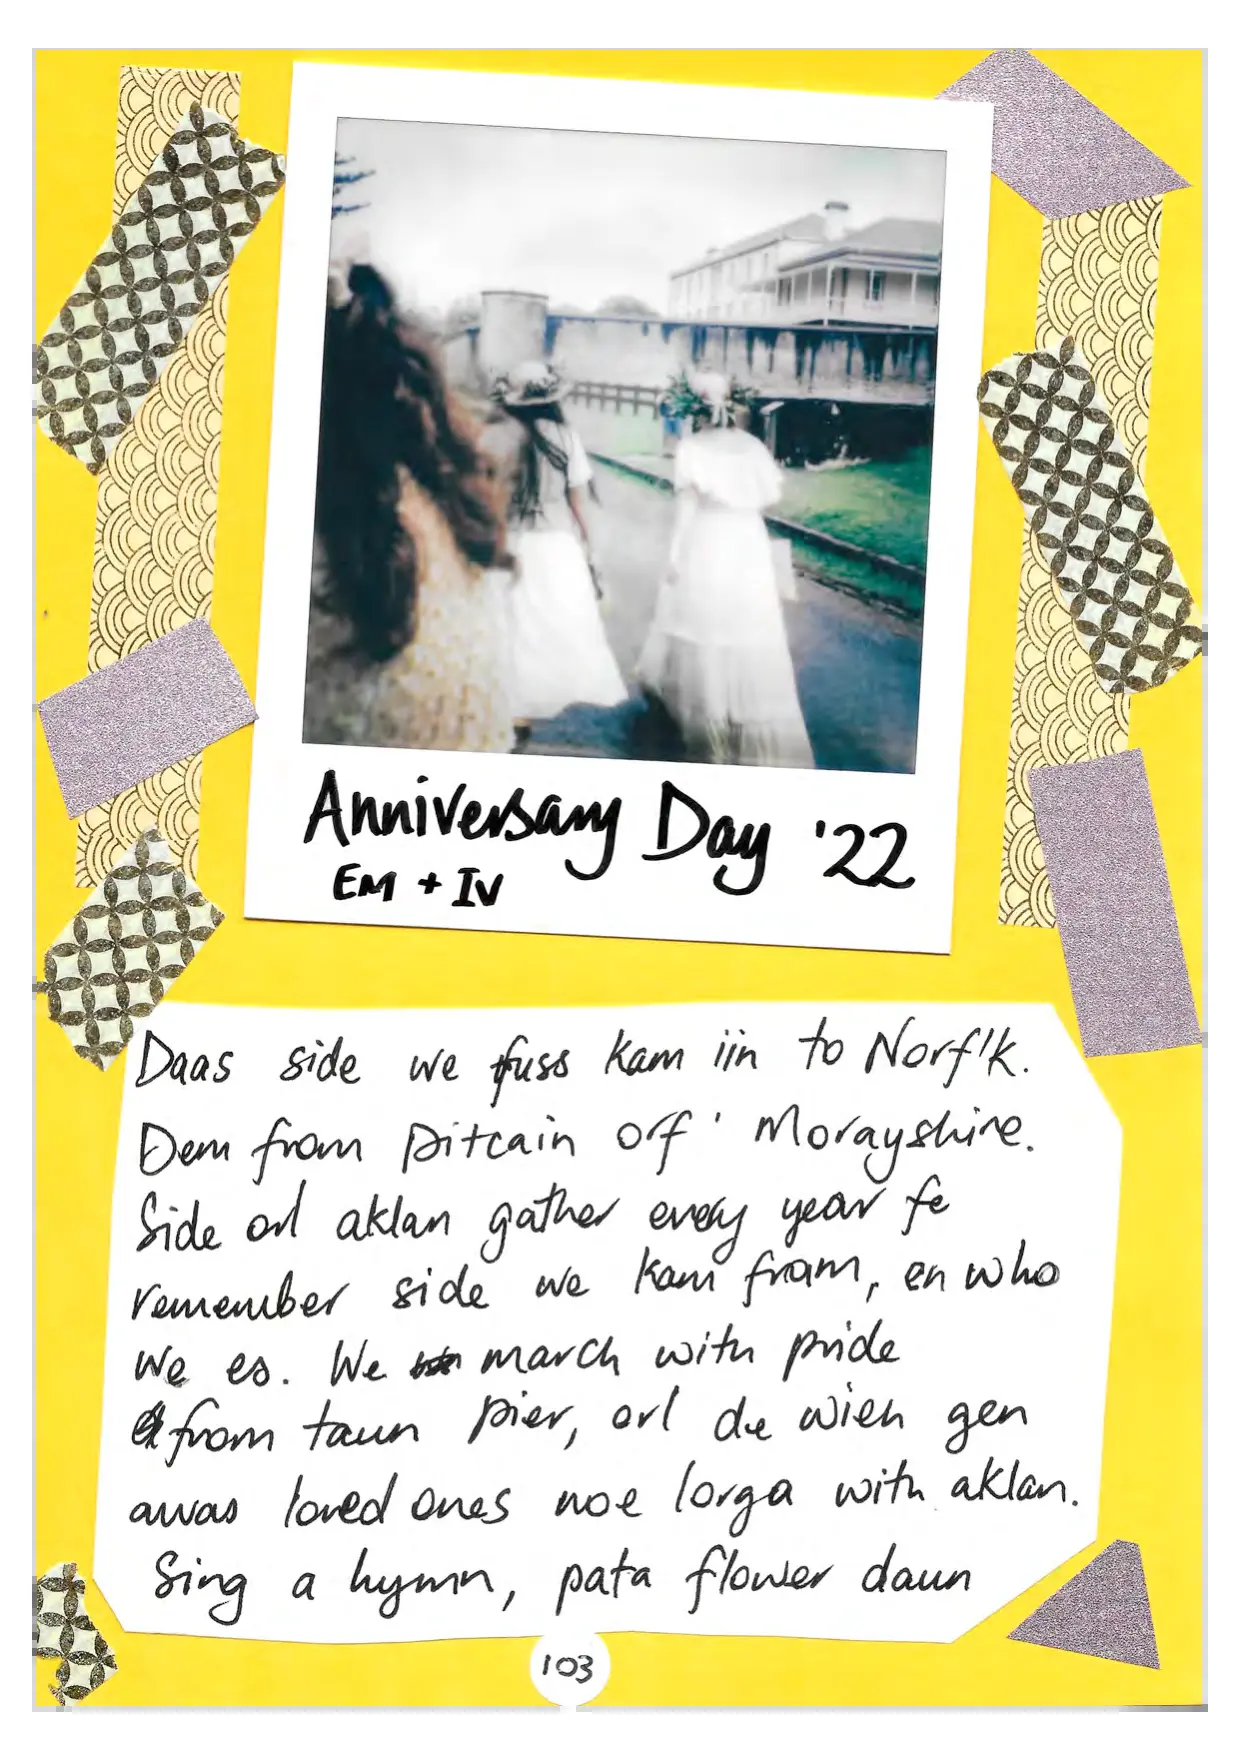 Anniversary Day '22
EM + IV
Daas side we fuss kam iin to Norf'k.
Dem from Pitcain orf' Morayshire.
Side orl aklan gather every year fe
remember side we kam fram, en who
we es. We march with pride
from taun pier, orl de wieh gen
awas loved ones noe lorga with aklan.
Sing a hymn, pata flower daun
103